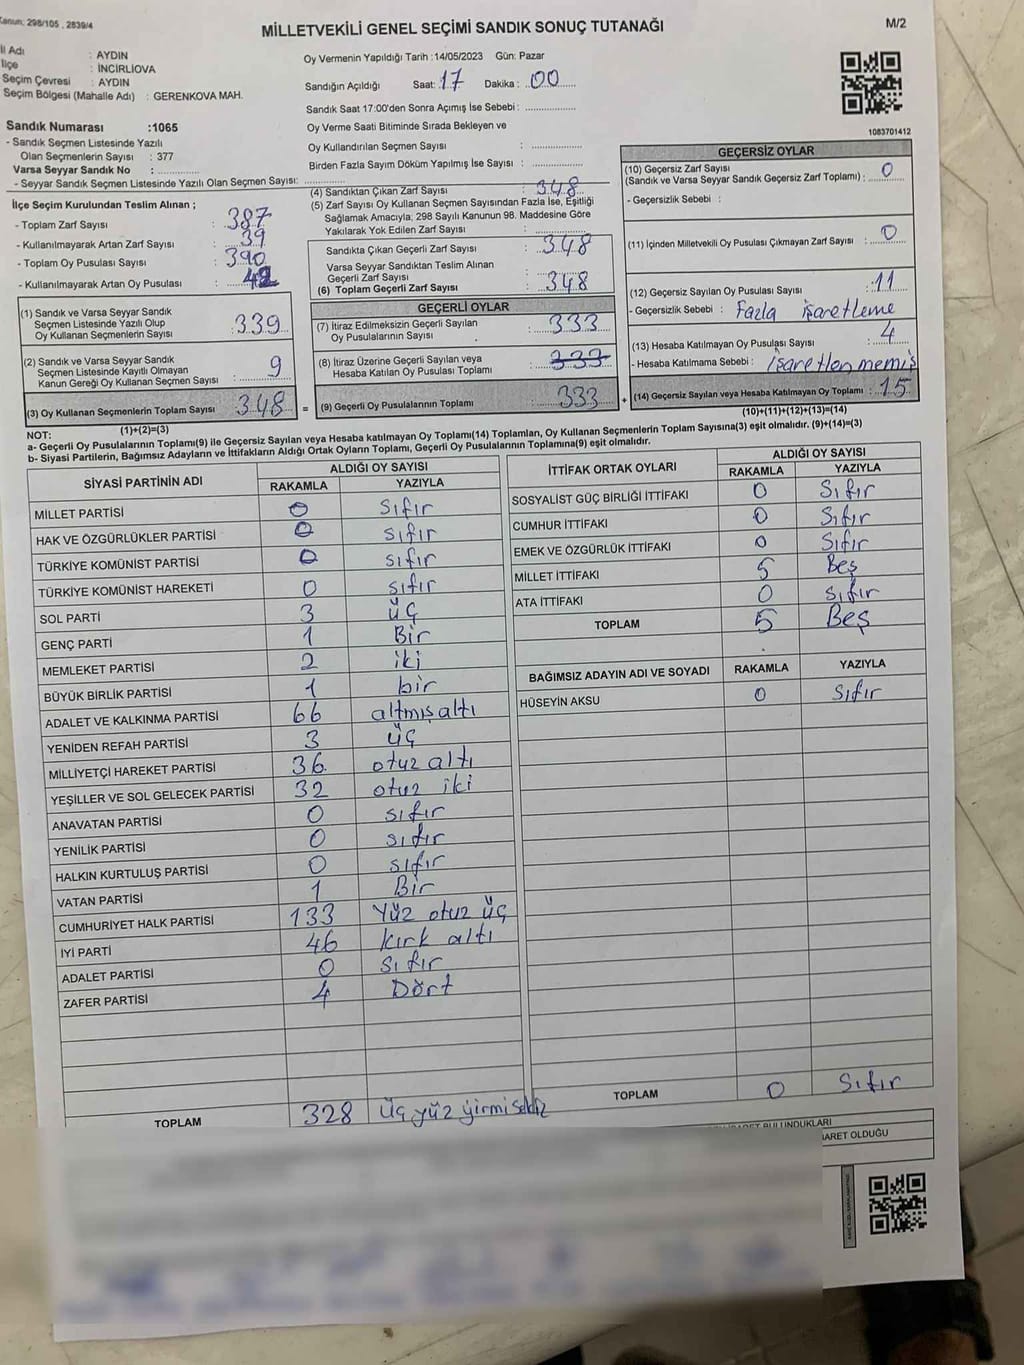 Kanun: 298/105 , 2839/4
MİLLETVEKİLİ GENEL SEÇİMİ SANDIK SONUÇ TUTANAĞI
M/2
İl Adı : AYDIN
İlçe : İNCİRLİOVA
Seçim Çevresi : AYDIN
Seçim Bölgesi (Mahalle Adı) : GERENKOVA MAH.
Sandık Numarası :1065
- Sandık Seçmen Listesinde Yazılı
Olan Seçmenlerin Sayısı : 377
Varsa Seyyar Sandık No :
- Seyyar Sandık Seçmen Listesinde Yazılı Olan Seçmen Sayısı:
Oy Vermenin Yapıldığı Tarih :14/05/2023 Gün: Pazar
Sandığın Açıldığı Saat: 17 Dakika : 00
Sandık Saat 17:00'den Sonra Açımış İse Sebebi :
Oy Verme Saati Bitiminde Sırada Bekleyen ve
Oy Kullandırılan Seçmen Sayısı :
Birden Fazla Sayım Döküm Yapılmış İse Sayısı :
1083701412
İlçe Seçim Kurulundan Teslim Alınan ;
- Toplam Zarf Sayısı : 387
- Kullanılmayarak Artan Zarf Sayısı : 39
- Toplam Oy Pusulası Sayısı : 390
- Kullanılmayarak Artan Oy Pusulası : 42
(1) Sandık ve Varsa Seyyar Sandık
Seçmen Listesinde Yazılı Olup
Oy Kullanan Seçmenlerin Sayısı : 339
(2) Sandık ve Varsa Seyyar Sandık
Seçmen Listesinde Kayıtlı Olmayan
Kanun Gereği Oy Kullanan Seçmen Sayısı : 9
(3) Oy Kullanan Seçmenlerin Toplam Sayısı 348 =
(1)+(2)=(3)
(4) Sandıktan Çıkan Zarf Sayısı : 348
(5) Zarf Sayısı Oy Kullanan Seçmen Sayısından Fazla İse, Eşitliği
Sağlamak Amacıyla, 298 Sayılı Kanunun 98. Maddesine Göre
Yakılarak Yok Edilen Zarf Sayısı :
Sandıkta Çıkan Geçerli Zarf Sayısı : 348
Varsa Seyyar Sandıktan Teslim Alınan
Geçerli Zarf Sayısı :
(6) Toplam Geçerli Zarf Sayısı : 348
GEÇERLİ OYLAR
(7) İtiraz Edilmeksizin Geçerli Sayılan
Oy Pusulalarının Sayısı : 333
(8) İtiraz Üzerine Geçerli Sayılan veya
Hesaba Katılan Oy Pusulası Toplamı : 333
(9) Geçerli Oy Pusulalarının Toplamı : 333 +
GEÇERSİZ OYLAR
(10) Geçersiz Zarf Sayısı
(Sandık ve Varsa Seyyar Sandık Geçersiz Zarf Toplamı) : 0
- Geçersizlik Sebebi :
(11) İçinden Milletvekili Oy Pusulası Çıkmayan Zarf Sayısı : 0
(12) Geçersiz Sayılan Oy Pusulası Sayısı : 11
- Geçersizlik Sebebi : Fazla işaretleme
(13) Hesaba Katılmayan Oy Pusulası Sayısı : 4
- Hesaba Katılmama Sebebi : işaretlenmemiş
(14) Geçersiz Sayılan veya Hesaba Katılmayan Oy Toplamı : 15
(10)+(11)+(12)+(13)=(14)
NOT:
a- Geçerli Oy Pusulalarının Toplamı(9) ile Geçersiz Sayılan veya Hesaba katılmayan Oy Toplamı(14) Toplamları, Oy Kullanan Seçmenlerin Toplam Sayısına(3) eşit olmalıdır. (9)+(14)=(3)
b- Siyasi Partilerin, Bağımsız Adayların ve İttifakların Aldığı Ortak Oyların Toplamı, Geçerli Oy Pusulalarının Toplamına(9) eşit olmalıdır.
SİYASİ PARTİNİN ADI ALDIĞI OY SAYISI
RAKAMLA YAZIYLA
MİLLET PARTİSİ 0 sıfır
HAK VE ÖZGÜRLÜKLER PARTİSİ 0 sıfır
TÜRKİYE KOMÜNİST PARTİSİ 0 sıfır
TÜRKİYE KOMÜNİST HAREKETİ 0 sıfır
SOL PARTİ 3 üç
GENÇ PARTİ 1 Bir
MEMLEKET PARTİSİ 2 iki
BÜYÜK BİRLİK PARTİSİ 1 bir
ADALET VE KALKINMA PARTİSİ 66 altmış altı
YENİDEN REFAH PARTİSİ 3 üç
MİLLİYETÇİ HAREKET PARTİSİ 36 otuz altı
YEŞİLLER VE SOL GELECEK PARTİSİ 32 otuz iki
ANAVATAN PARTİSİ 0 sıfır
YENİLİK PARTİSİ 0 sıfır
HALKIN KURTULUŞ PARTİSİ 0 sıfır
VATAN PARTİSİ 1 Bir
CUMHURİYET HALK PARTİSİ 133 Yüz otuz üç
İYİ PARTİ 46 kırk altı
ADALET PARTİSİ 0 Sıfır
ZAFER PARTİSİ 4 Dört
TOPLAM 328 üç yüz yirmi sekiz
İTTİFAK ORTAK OYLARI ALDIĞI OY SAYISI
RAKAMLA YAZIYLA
SOSYALİST GÜÇ BİRLİĞİ İTTİFAKI 0 Sıfır
CUMHUR İTTİFAKI 0 Sıfır
EMEK VE ÖZGÜRLÜK İTTİFAKI 0 Sıfır
MİLLET İTTİFAKI 5 Beş
ATA İTTİFAKI 0 sıfır
TOPLAM 5 Beş
BAĞIMSIZ ADAYIN ADI VE SOYADI RAKAMLA YAZIYLA
HÜSEYİN AKSU 0 Sıfır
TOPLAM 0 Sıfır
BULUNDUKLARI
İŞARET OLDUĞU